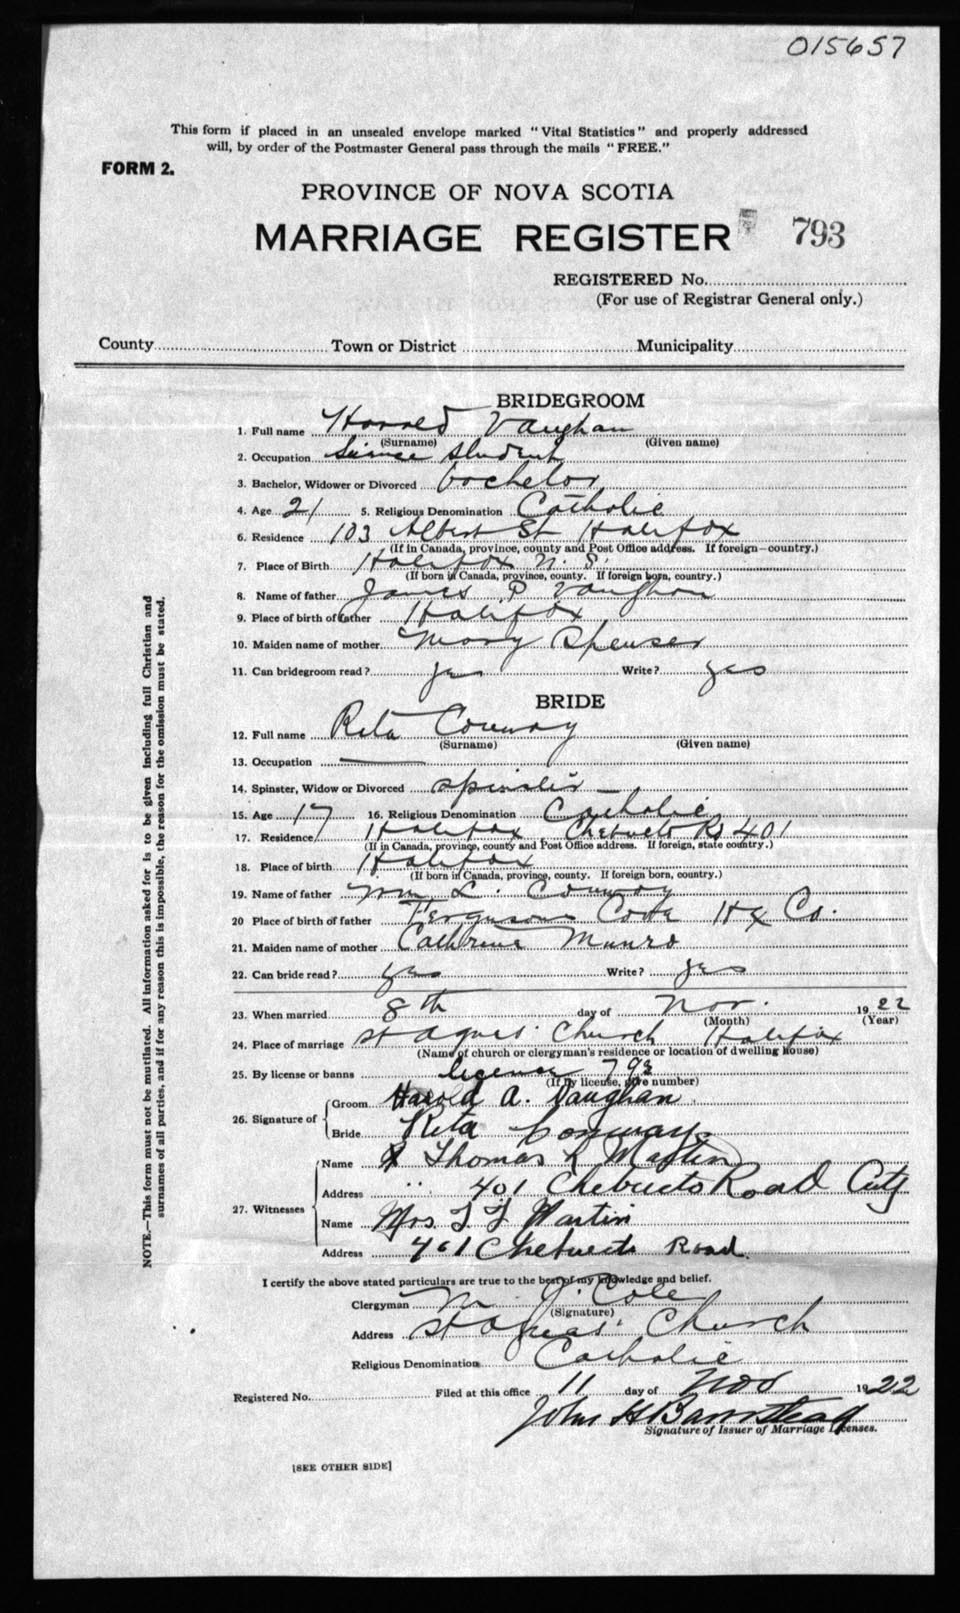 015657
This form if placed in an unsealed envelope marked "Vital Statistics" and properly addressed
will, by order of the Postmaster General pass through the mails "FREE."
FORM 2.
PROVINCE OF NOVA SCOTIA
MARRIAGE REGISTER 793
REGISTERED No.
(For use of Registrar General only.)
County Town or District Municipality
BRIDEGROOM
1. Full name Harold Vaughan
(Surname) (Given name)
2. Occupation Science student
3. Bachelor, Widower or Divorced bachelor
4. Age 21 5. Religious Denomination Catholic
6. Residence 103 Albert St Halifax
(If in Canada, province, county and Post Office address. If foreign—country.)
7. Place of Birth Halifax N. S.
(If born in Canada, province, county. If foreign born, country.)
8. Name of father James P Vaughan
9. Place of birth of father Halifax
10. Maiden name of mother Mary Spenser
11. Can bridegroom read? yes Write? yes
BRIDE
12. Full name Rita Conway
(Surname) (Given name)
13. Occupation —
14. Spinster, Widow or Divorced spinster —
15. Age 17 16. Religious Denomination Catholic
17. Residence Halifax Chebucto Rd 401
(If in Canada, province, county and Post Office address. If foreign, state country.)
18. Place of birth Halifax
(If born in Canada, province, county. If foreign born, country.)
19. Name of father Wm L. Conway
20 Place of birth of father Fergusons Cove Hx Co.
21. Maiden name of mother Cathrine Munro
22. Can bride read? yes Write? yes
23. When married 8th day of Nov. 1922
(Month) (Year)
24. Place of marriage St Agnes' Church Halifax
(Name of church or clergyman's residence or location of dwelling house)
25. By license or banns license 793
(If by license, give number)
26. Signature of
Groom Harold A. Vaughan
Bride Rita Conway
27. Witnesses
Name Thomas L Martin
Address " 401 Chebucto Road City
Name Mrs T L Martin
Address 401 Chebucto Road
I certify the above stated particulars are true to the best of my knowledge and belief.
Clergyman M J. Cole
(Signature)
Address St Agnes' Church
Religious Denomination Catholic
Registered No. Filed at this office 11 day of Nov 1922
John H Barnstead
Signature of Issuer of Marriage Licenses.
[SEE OTHER SIDE]
NOTE.—This form must not be mutilated. All information asked for is to be given including full Christian and
surnames of all parties, and if for any reason this is impossible, the reason for the omission must be stated.